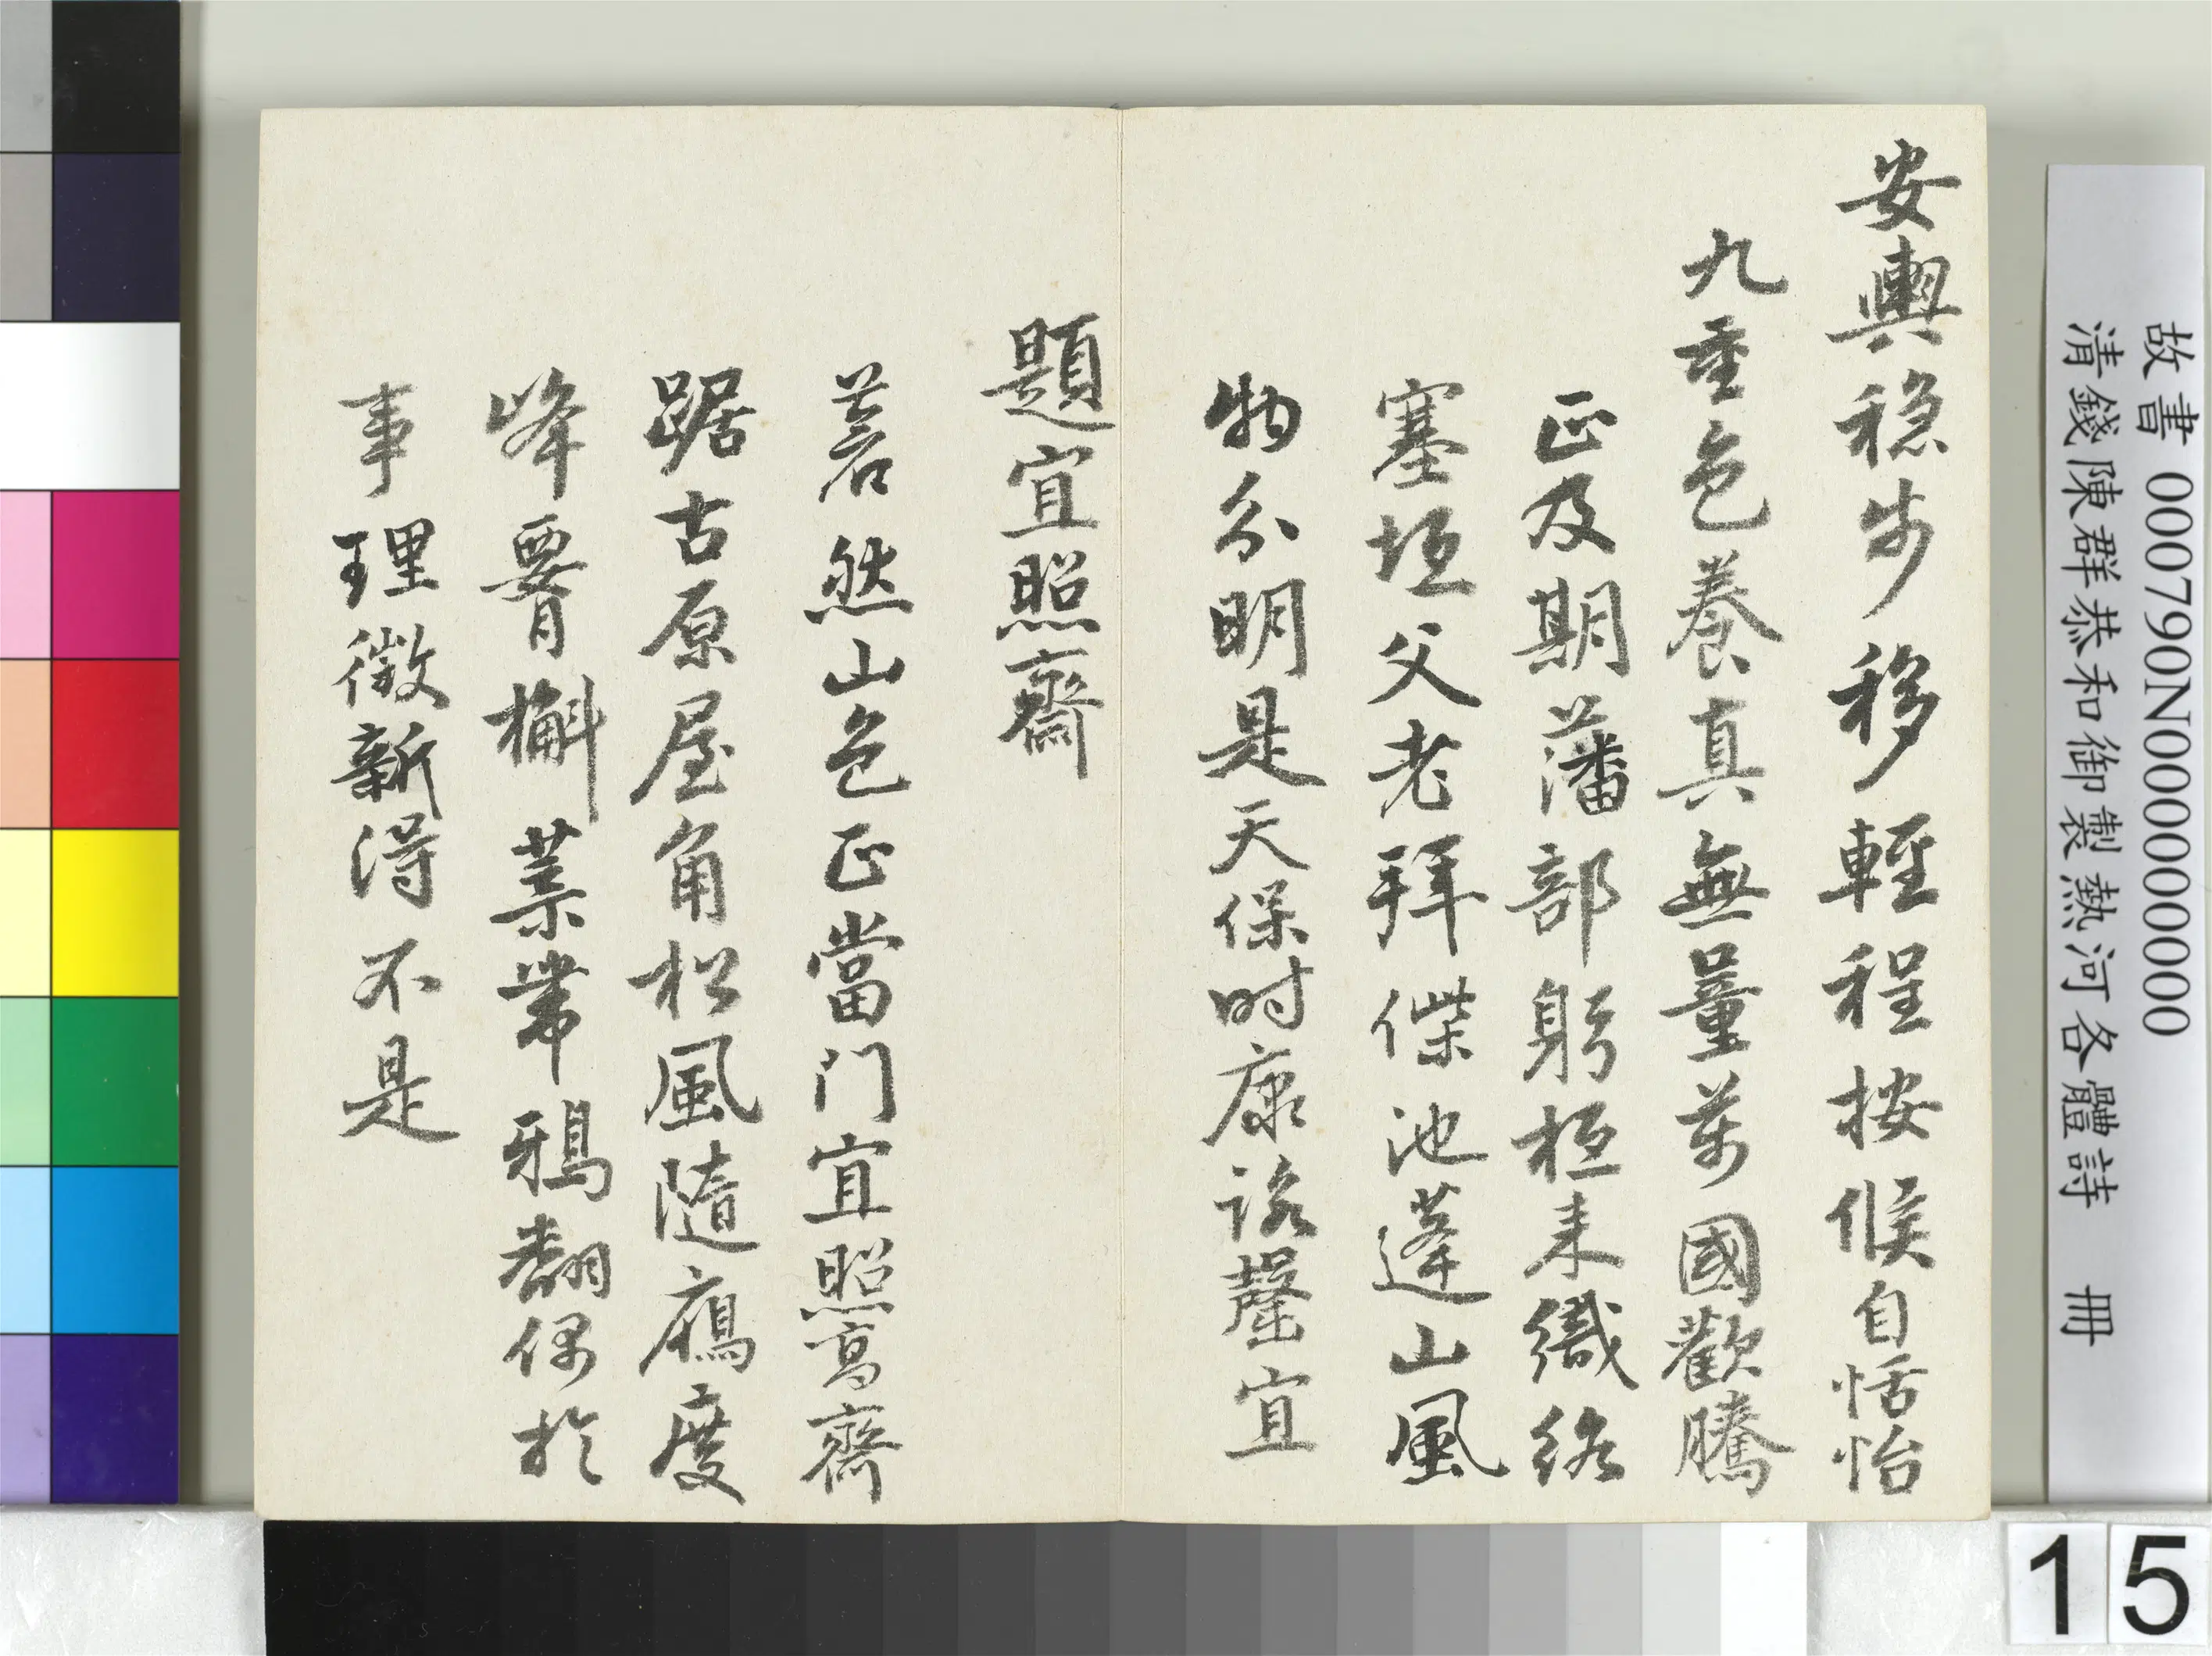 安輿穩步移輕程按候自恬怡
九重色養真無量萬國歡騰
正及期藩部躬桓來織絡
塞垣父老拜傑池蓬山風
物分明是天保時康詠罄宜
題宜照齋
菩然山色正當门宜照高齋
踞古原屋角松風隨鴈度
峰腰槲葉帶鴉翻偶於
事理徵新得不是
故書 000790N000000000
清錢陳群恭和御製熱河各體詩 冊
15